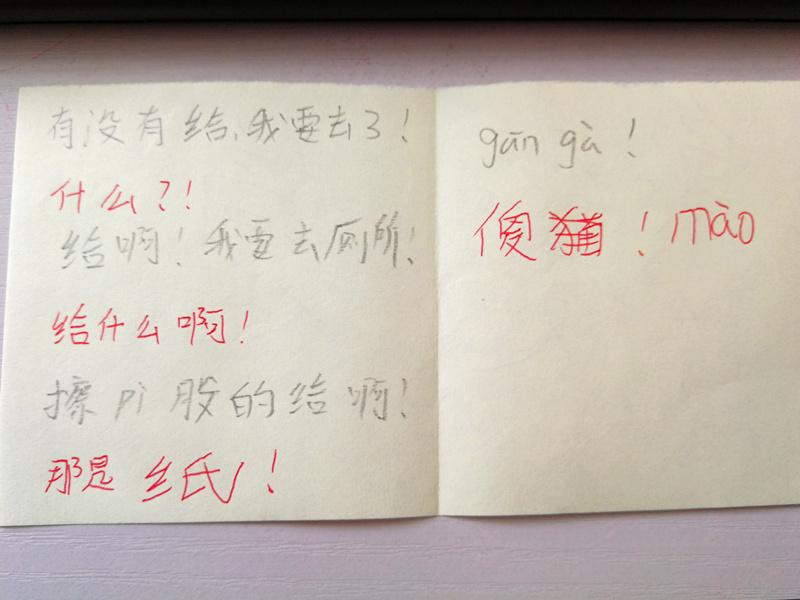 有没有给,我要去了!
什么?!
给啊!我要去厕所!
给什么啊!
擦pì股的给啊!
那是纸!
gān gà!
傻 ! māo